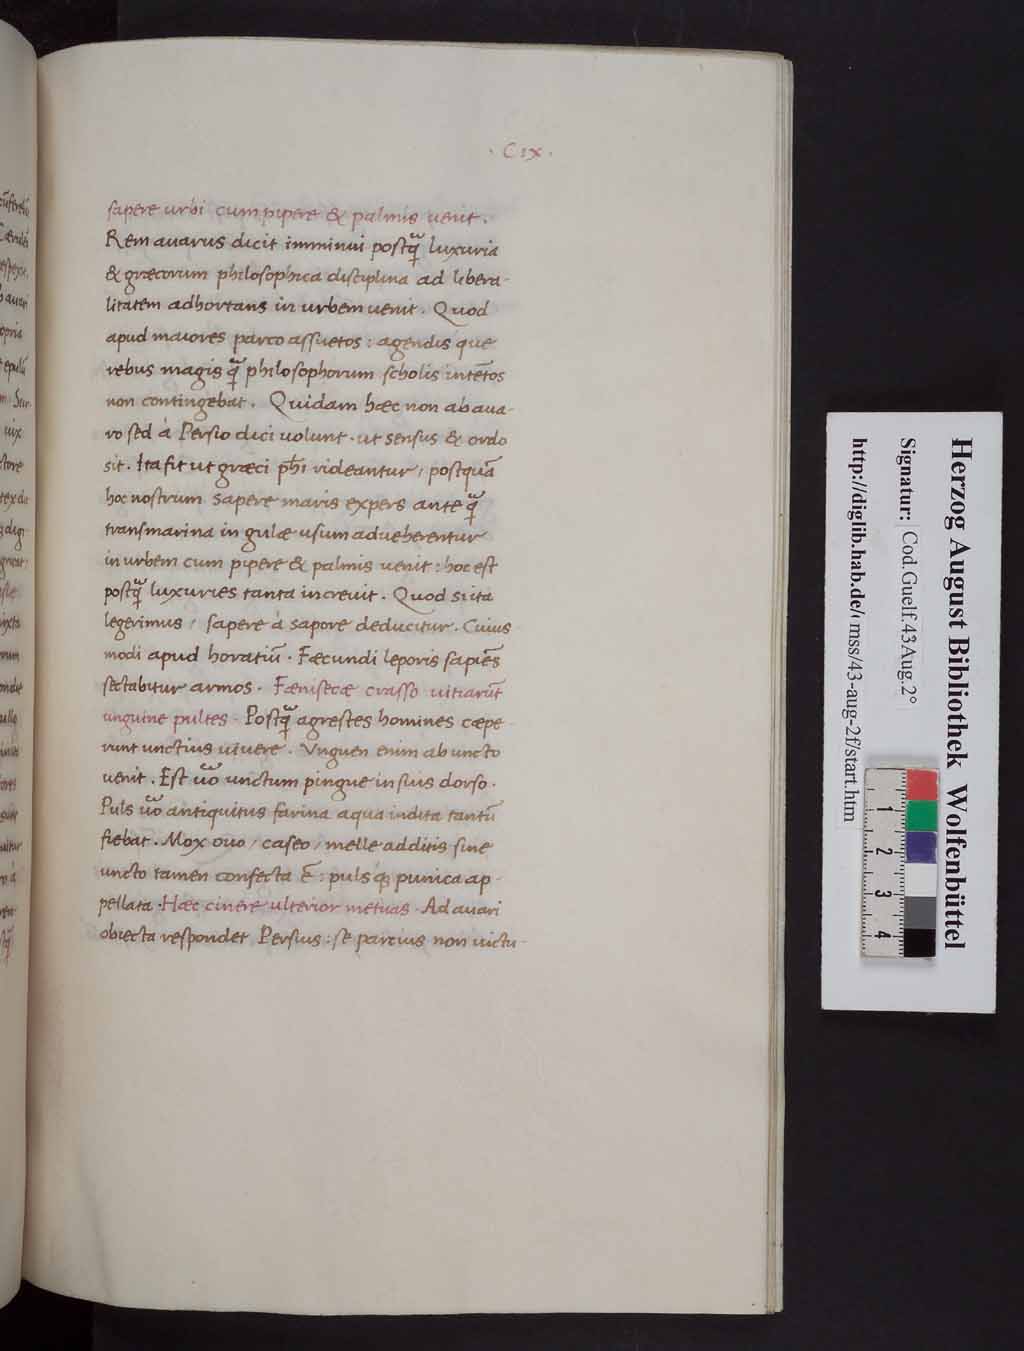 · C IX ·
sapere urbi cum pipere & palmis uenit.
Rem auarus dicit imminui postq̃ luxuria
& græcorum philosophica disciplina ad libera-
litatem adhortans in urbem uenit. Quod
apud maiores parco assuetos : agendis que
rebus magis q̃ philosophorum scholis intẽtos
non contingebat. Quidam hæc non ab aua-
ro sed à Persio dici uolunt. ut sensus & ordo
sit. Ita fit ut græci phi̅ rideantur, postquã
hoc nostrum sapere maris expers ante q̃
transmarina in gulæ usum adueherentur
in urbem cum pipere & palmis uenit : hoc est
postq̃ luxuries tanta increuit. Quod si ita
legerimus, sapere à sapore deducitur. Cuius
modi apud horatiũ. Fæcundi leporis sapiẽs
sectabitur armos. Fænisecæ crasso uitiarũt
unguine pultes. Postq̃ agrestes homines cæpe
runt unctius uiuere. Vnguen enim ab uncto
uenit. Est uo̅ unctum pingue in suis dorso.
Puls uo̅ antiquitus farina aqua indita tantũ
fiebat. Mox ouo, caseo, melle additis sine
uncto tamen confecta ẽ : puls q́ꝫ punica ap-
pellata. Hæc cinere ulterior metuas. Ad auari
obiecta respondet Persius : se parcius non uictu-
cũferetũ
auari
opris
epulũ
uix
ctore
Herzog August Bibliothek Wolfenbüttel
Signatur: Cod.Guelf.43 Aug.2°
http://diglib.hab.de/mss/43-aug-2f/start.htm
1
2
3
4